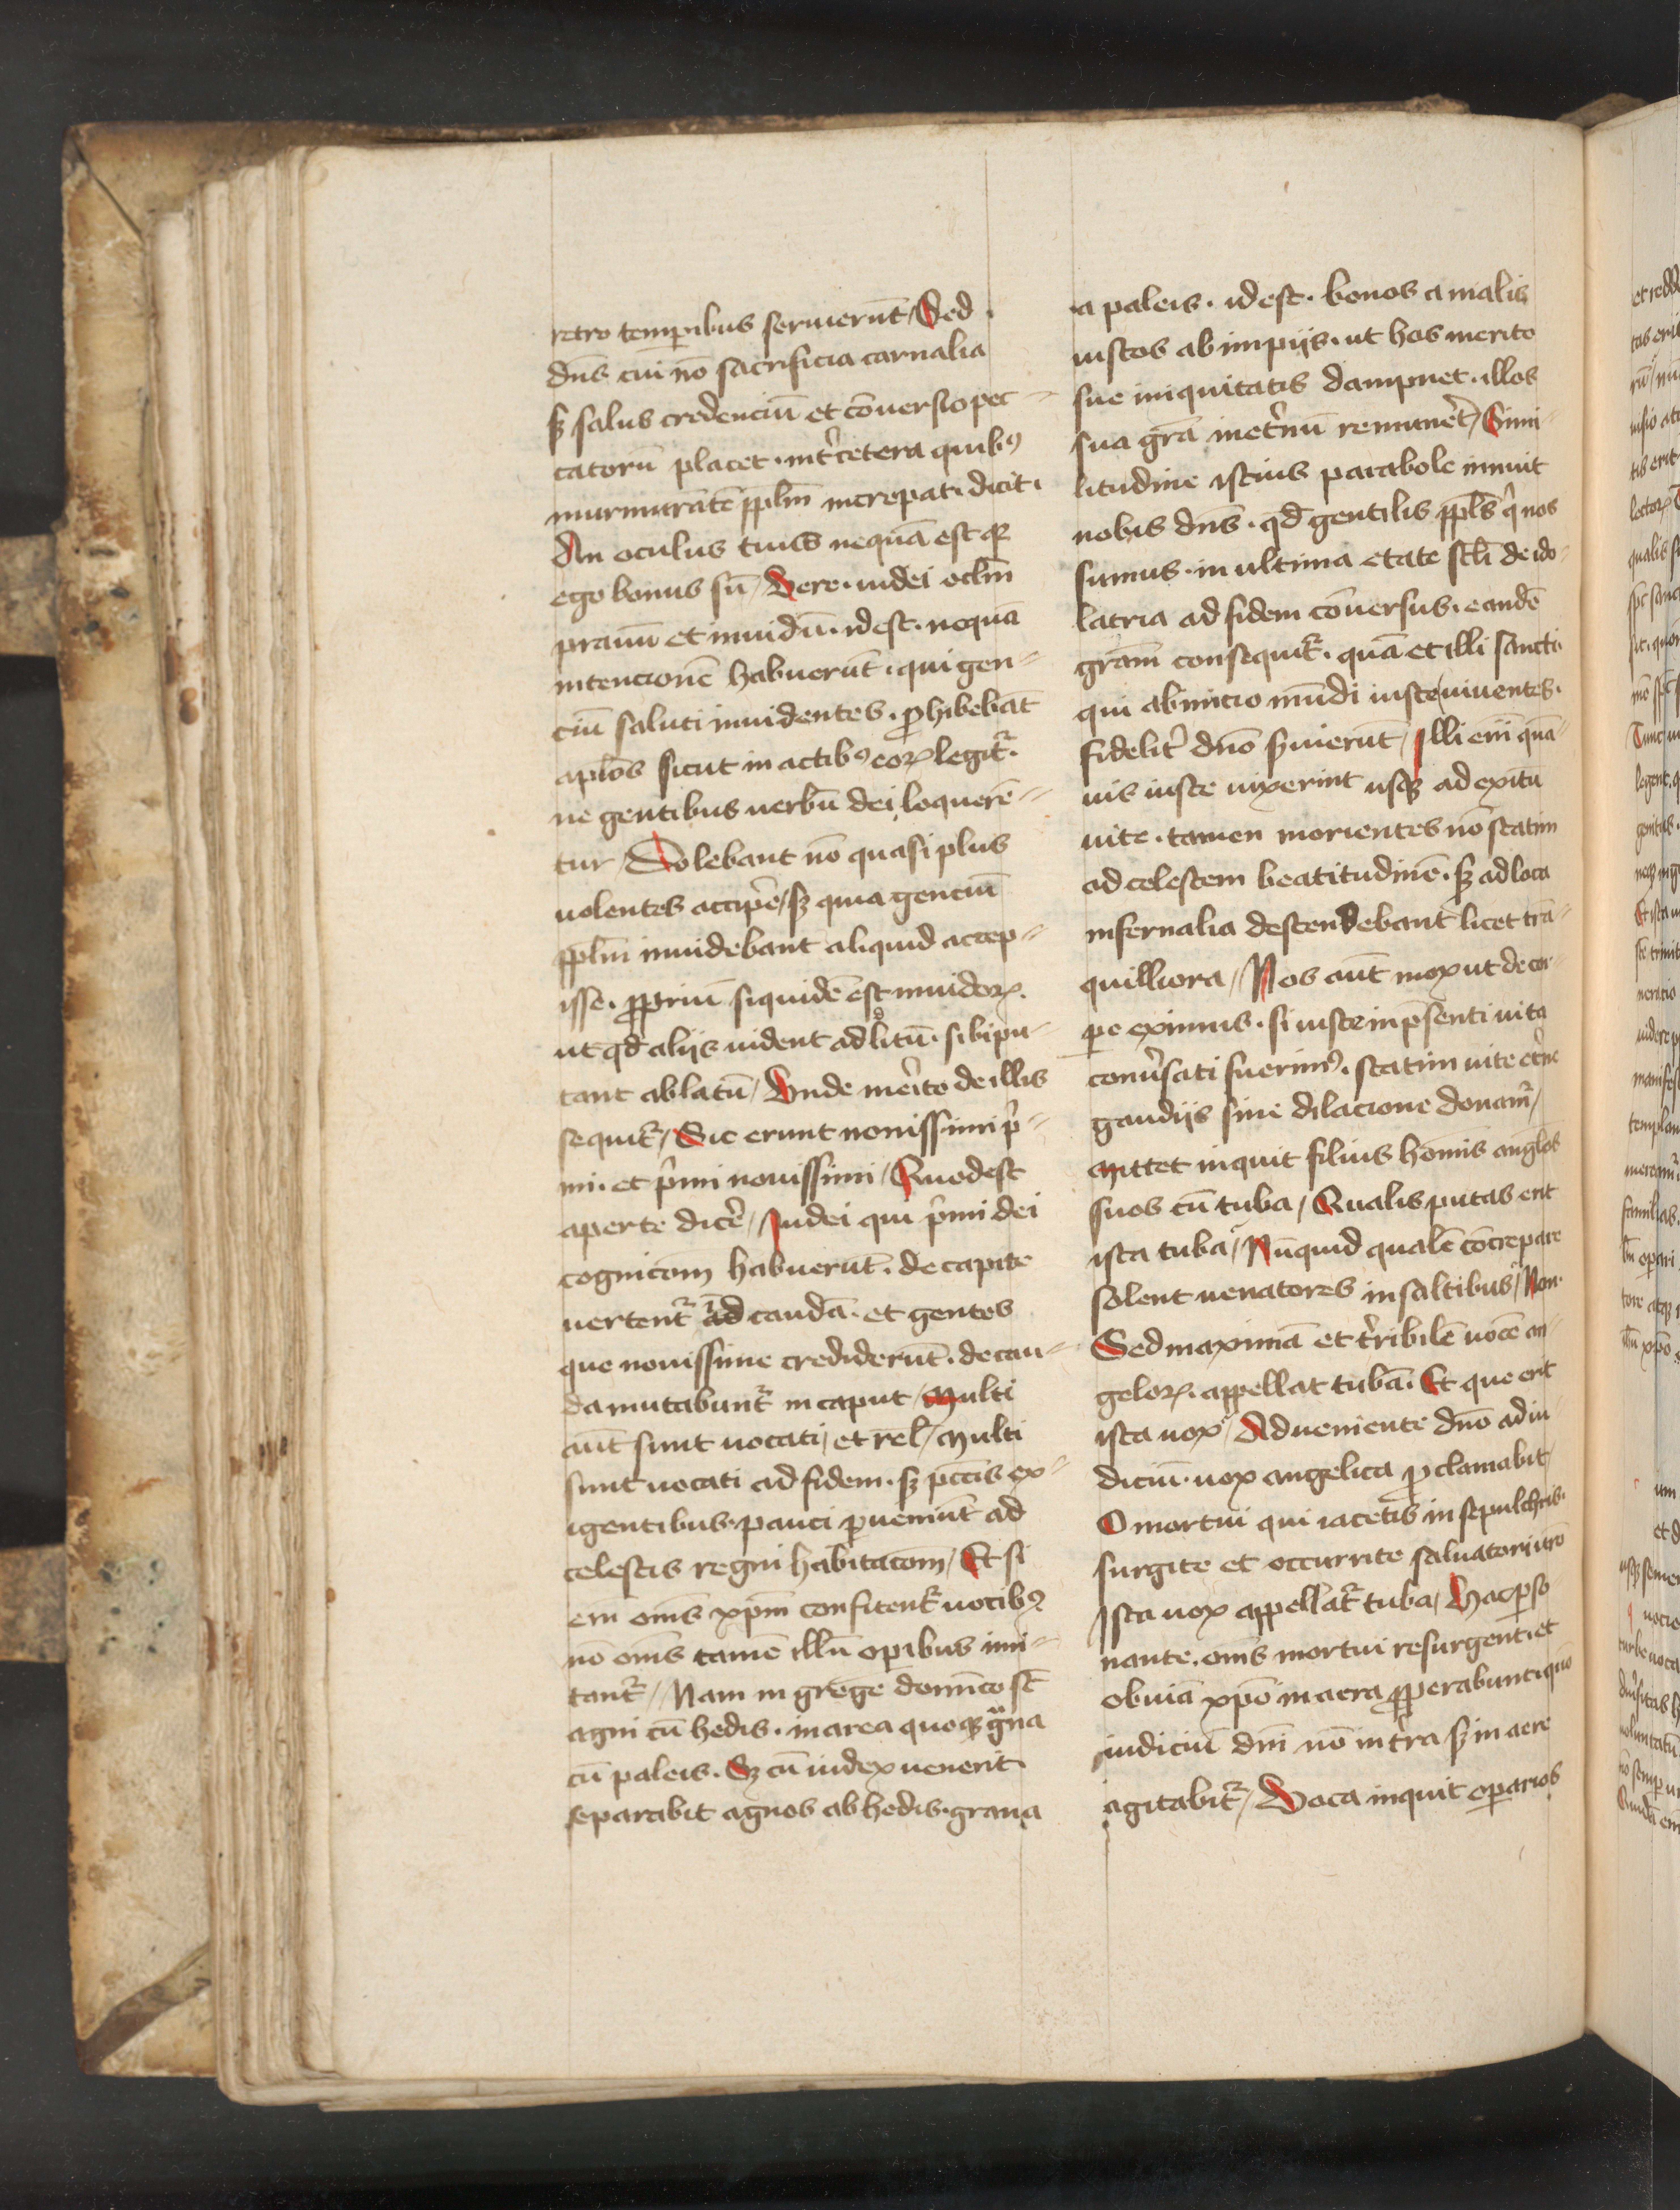 retro temporibus seruierūt / Sed
dn̄s cui nō sacrificia carnalia
sꝫ salus credenciū et cōuersio pec-
catorū placet · int̄ cetera quibꝰ
murmurātē ppl̄m increpat · dicit ·
An oculus tuus nequā est qꝛ
ego bonus sū / Vere · iudei oclm̄
prauū et inuidū · idest · nequā
intencionē habuerūt · qui gen-
ciū saluti inuidentes · ꝓhibebāt
apl̄os sicut in actibꝰ eoꝝ legit᷑ ·
ne gentibus uerbū dei loquerē-
tur / Dolebant nō quasi plus
uolentes accipe᷑ / sꝫ quia genciū
ppl̄m inuidebant aliquid accep-
isse · ꝓpriū siquidē est inuidoꝝ ·
ut qd̄ aliis uident adh̓itū · sibi pu-
tant ablatū / Unde merito de illis
sequit᷑ / Sic erunt nouissimi p̓-
mi · et p̓mi nouissimi / Quodest
aperte dice᷑ / Iudei qui p̓mi dei
cognicōm habuerūt · de capite
uertent᷑ ad caudā · et gentes
que nouissime crediderūt · de cau-
da mutabunt᷑ in caput / Multi
aūt sunt uocati / et rel̄ / Multi
sunt uocati ad fidem · sꝫ pctīs ex-
igentibus · pauci ꝑueniūt ad
celestis regni habitacōm / Et si
em̄ om̄s xpm̄ confitent᷑ uocibꝰ
nō om̄s tamē illū oꝑibus imi-
tant᷑ / Nam in grege domīco st̄
agni cū hedis · in area quoqꝫ gͣna
cū paleis · Sꝫ cū iudex uenerit
separabit agnos ab hedis · grana
a paleis · idest · bonos a malis
iustos ab impiis · ut hos merito
sue iniquitatis dampnet · illos
sua grā inet̓nū remunet̓ / Simi-
litudine istius parabole innuit
nobis dn̄s · qd̄ gentilis ppl̄s q̓ nos
sumus · in ultima etate scl̄i de ido-
latria ad fidem cōuersus · eandē
grām consequit᷑ · quā et illi sancti
qui ab inicio mūdi iuste uiuentes ·
fidelit̓ dn̄o s̓uierūt / Illi em̄ quā-
uis iuste uixerint usqꝫ ad exitū
uite · tamen morientes nō statim
ad celestem beatitudinē · sꝫ ad loca
infernalia descendebant licet trā-
quilliora / Nos aūt mox ut de cor-
pe eximus · si iuste in p̄senti uita
conu̓sati fuerimꝰ · statim uite et̓ne
gaudiis sine dilacione donam᷑ /
Mittet inquit filius hōmis angl̄os
suos cū tuba / Qualis putas erit
ista tuba / Nūquid qualē cōcrepare
solent uenatores in saltibus / Non ·
Sed maximā et t̓ribilē uocē an-
geloꝝ · appellat tubā · Et que erit
ista uox / Adueniente dn̄o ad iu-
diciū · uox angelica ꝓclamabit /
O mortui qui iacetis in sepulchris ·
surgite et occurrite saluatori ur̄o
Ista uox appellat᷑ tuba / Hac ꝑso-
nante · om̄s mortui resurgent · et
obuiā xpō in aera ꝓperabunt · qm̄
iudiciū dn̄i nō in t̓ra sꝫ in aere
agitabit᷑ / Voca inquit oꝑarios